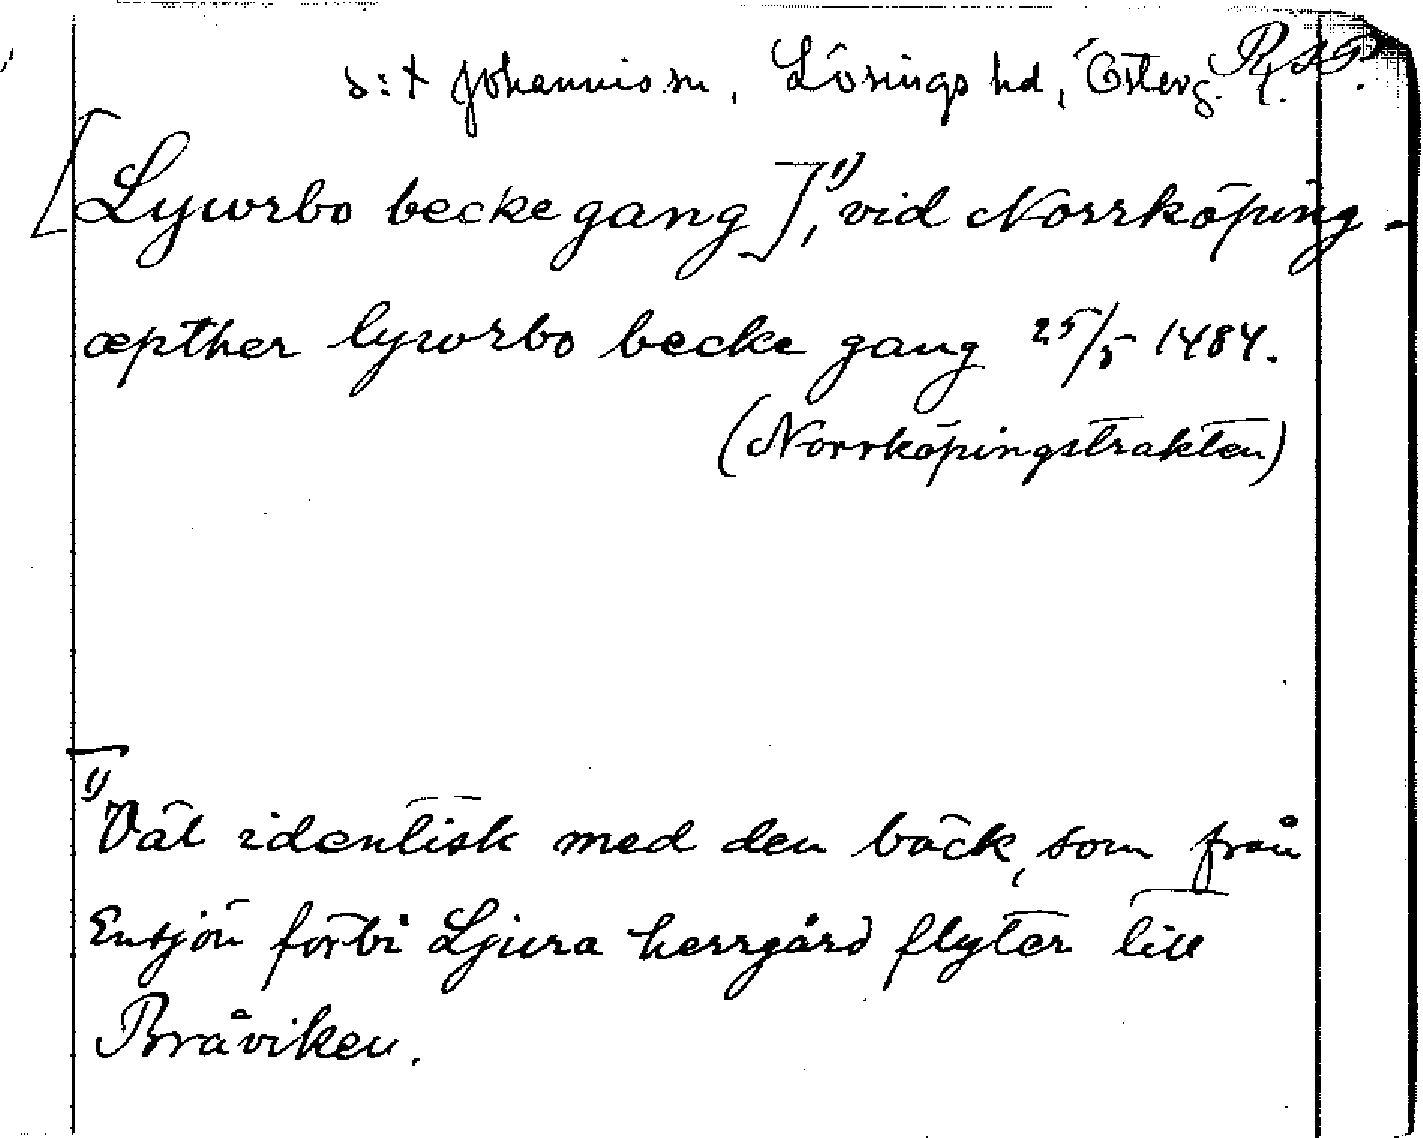 s:t Johannis sn, Lösings hd, Österg.
[Lywrbo becke gang],¹⁾ vid Norrköping -
æpther lywrbo becke gang 25/5 1484.
(Norrköpingstrakten)
¹⁾Väl identisk med den bäck, som från
Ensjön förbi Ljura herrgård flyter till
Bråviken.